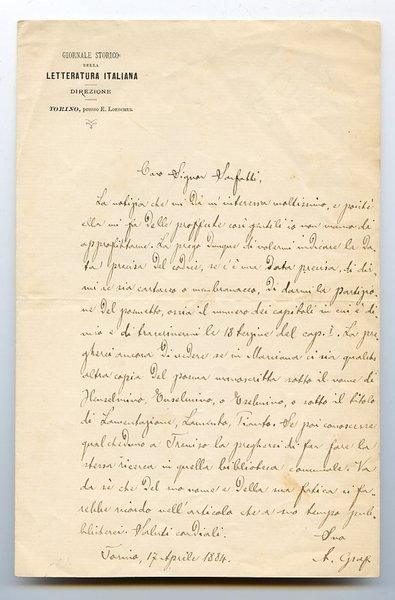 GIORNALE STORICO
DELLA
LETTERATURA ITALIANA
DIREZIONE
TORINO, presso E. Loescher.
Caro Signor Sarfatti,
La notizia che mi dà m'interessa moltissimo, e poiché
ella mi fa delle profferte così gentili io non manco di
approfittarne. La prego dunque di volermi indicare la da-
ta precisa del codice, se c'è una data precisa, di dir-
mi se sia cartaceo o membranaceo, di darmi la partizio-
ne del poemetto, ossia il numero dei capitoli in cui è di-
viso e di trascrivermi le 18 terzine del cap. I. La pre-
gherei ancora di vedere se in Marciana ci sia qualche
altra copia del poema manoscritta sotto il nome di
Henselmino, Enselmino, o Eselmino, o sotto il titolo
di Lamentazione, Lamento, Pianto. Se poi conoscesse
qualcheduno a Treviso la pregherei di far fare la
stessa ricerca in quella biblioteca comunale. Va
da sè che del suo nome e della sua fatica si fa-
rebbe ricordo nell'articolo che a suo tempo pub-
blicherei. Saluti cordiali.
Suo
Torino, 17 Aprile 1884. A. Graf